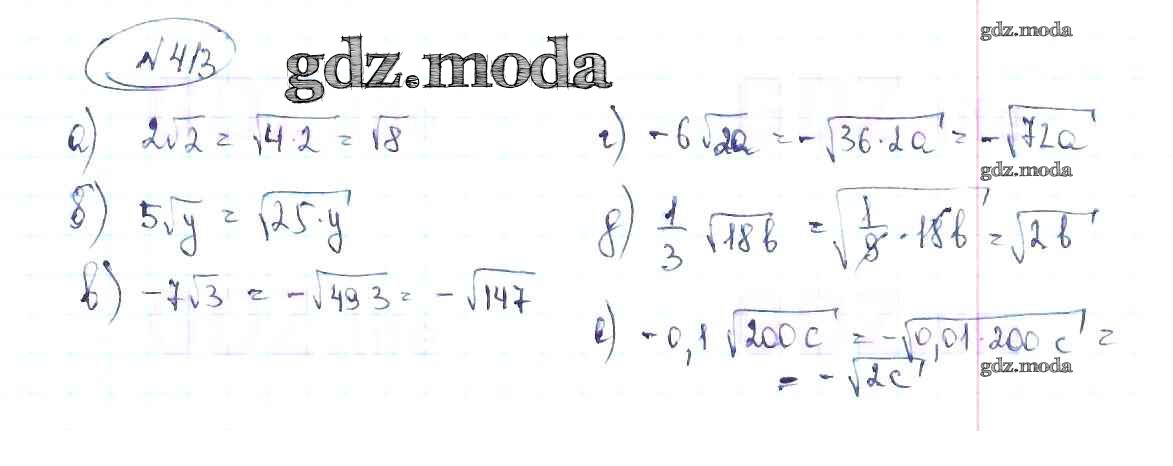 № 413
gdz.moda
gdz.moda
а) 2√2 = √4·2 = √8
б) 5√y = √25·y
в) -7√3 = -√49 3 = -√147
г) -6√2a = -√36·2a = -√72a
gdz.moda
д) 1/3 √18b = √1/9·18b = √2b
е) -0,1 √200c = -√0,01·200 c =
= -√2c
gdz.moda